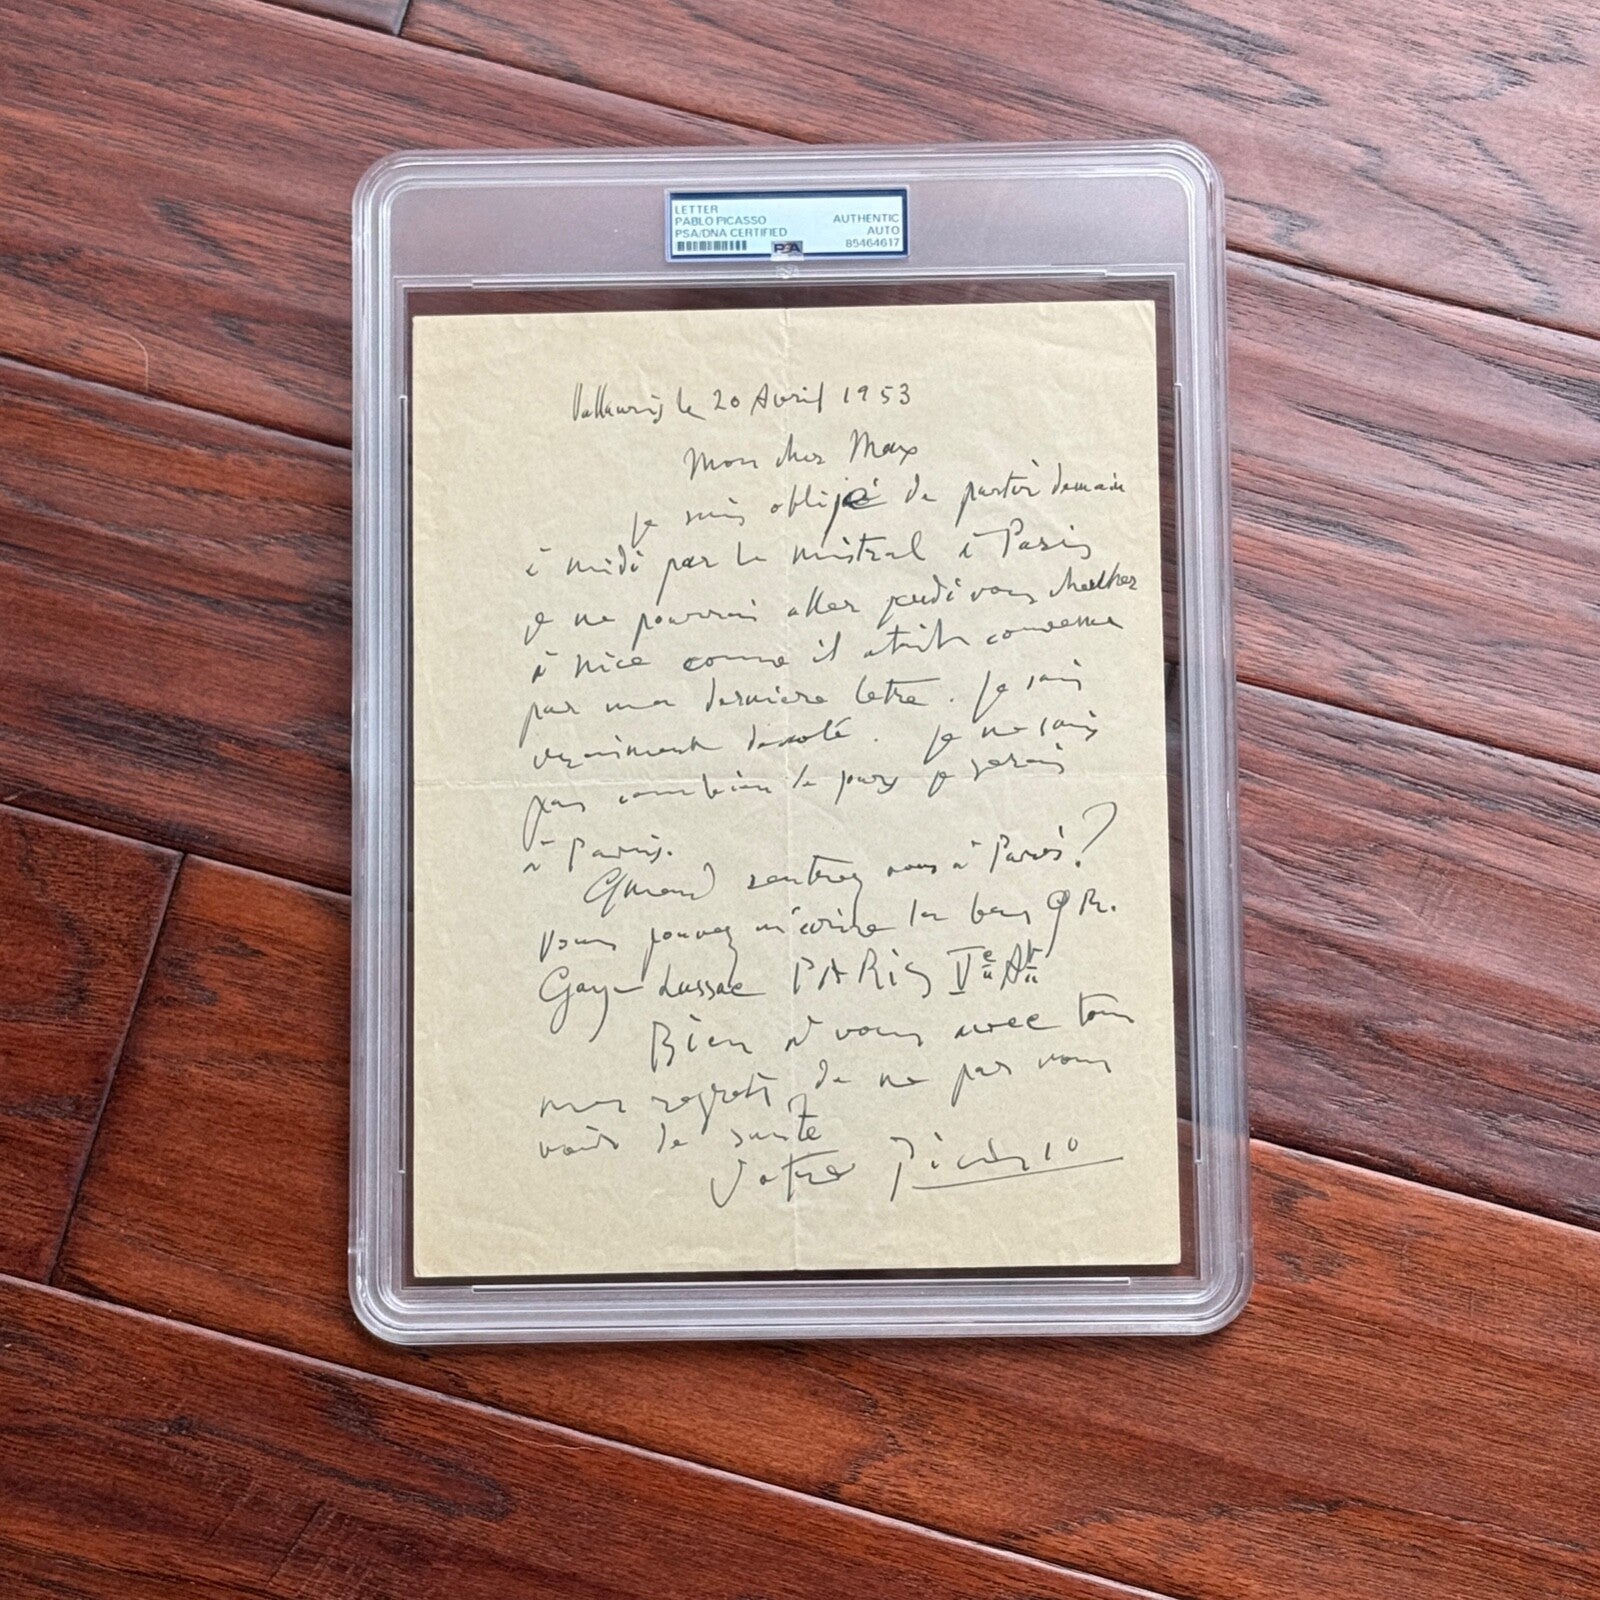 LETTER
PABLO PICASSO AUTHENTIC
PSA/DNA CERTIFIED AUTO
PSA 85464617
Vallauris le 20 Avril 1953
Mon cher Max
je suis obligé de partir demain
à midi par le mistral à Paris
je ne pourrai aller jeudi vous chercher
à Nice comme il était convenu
par ma dernière lettre. Je suis
vraiment désolé. Je ne sais
pas combien de jours je serais
à Paris.
Quand rentrez vous à Paris?
Vous pouvez m'écrire 9 R.
Gay-Lussac PARIS Ve At
Bien à vous avec tous
mes regrets de ne pas vous
voir de suite
Votre Picasso